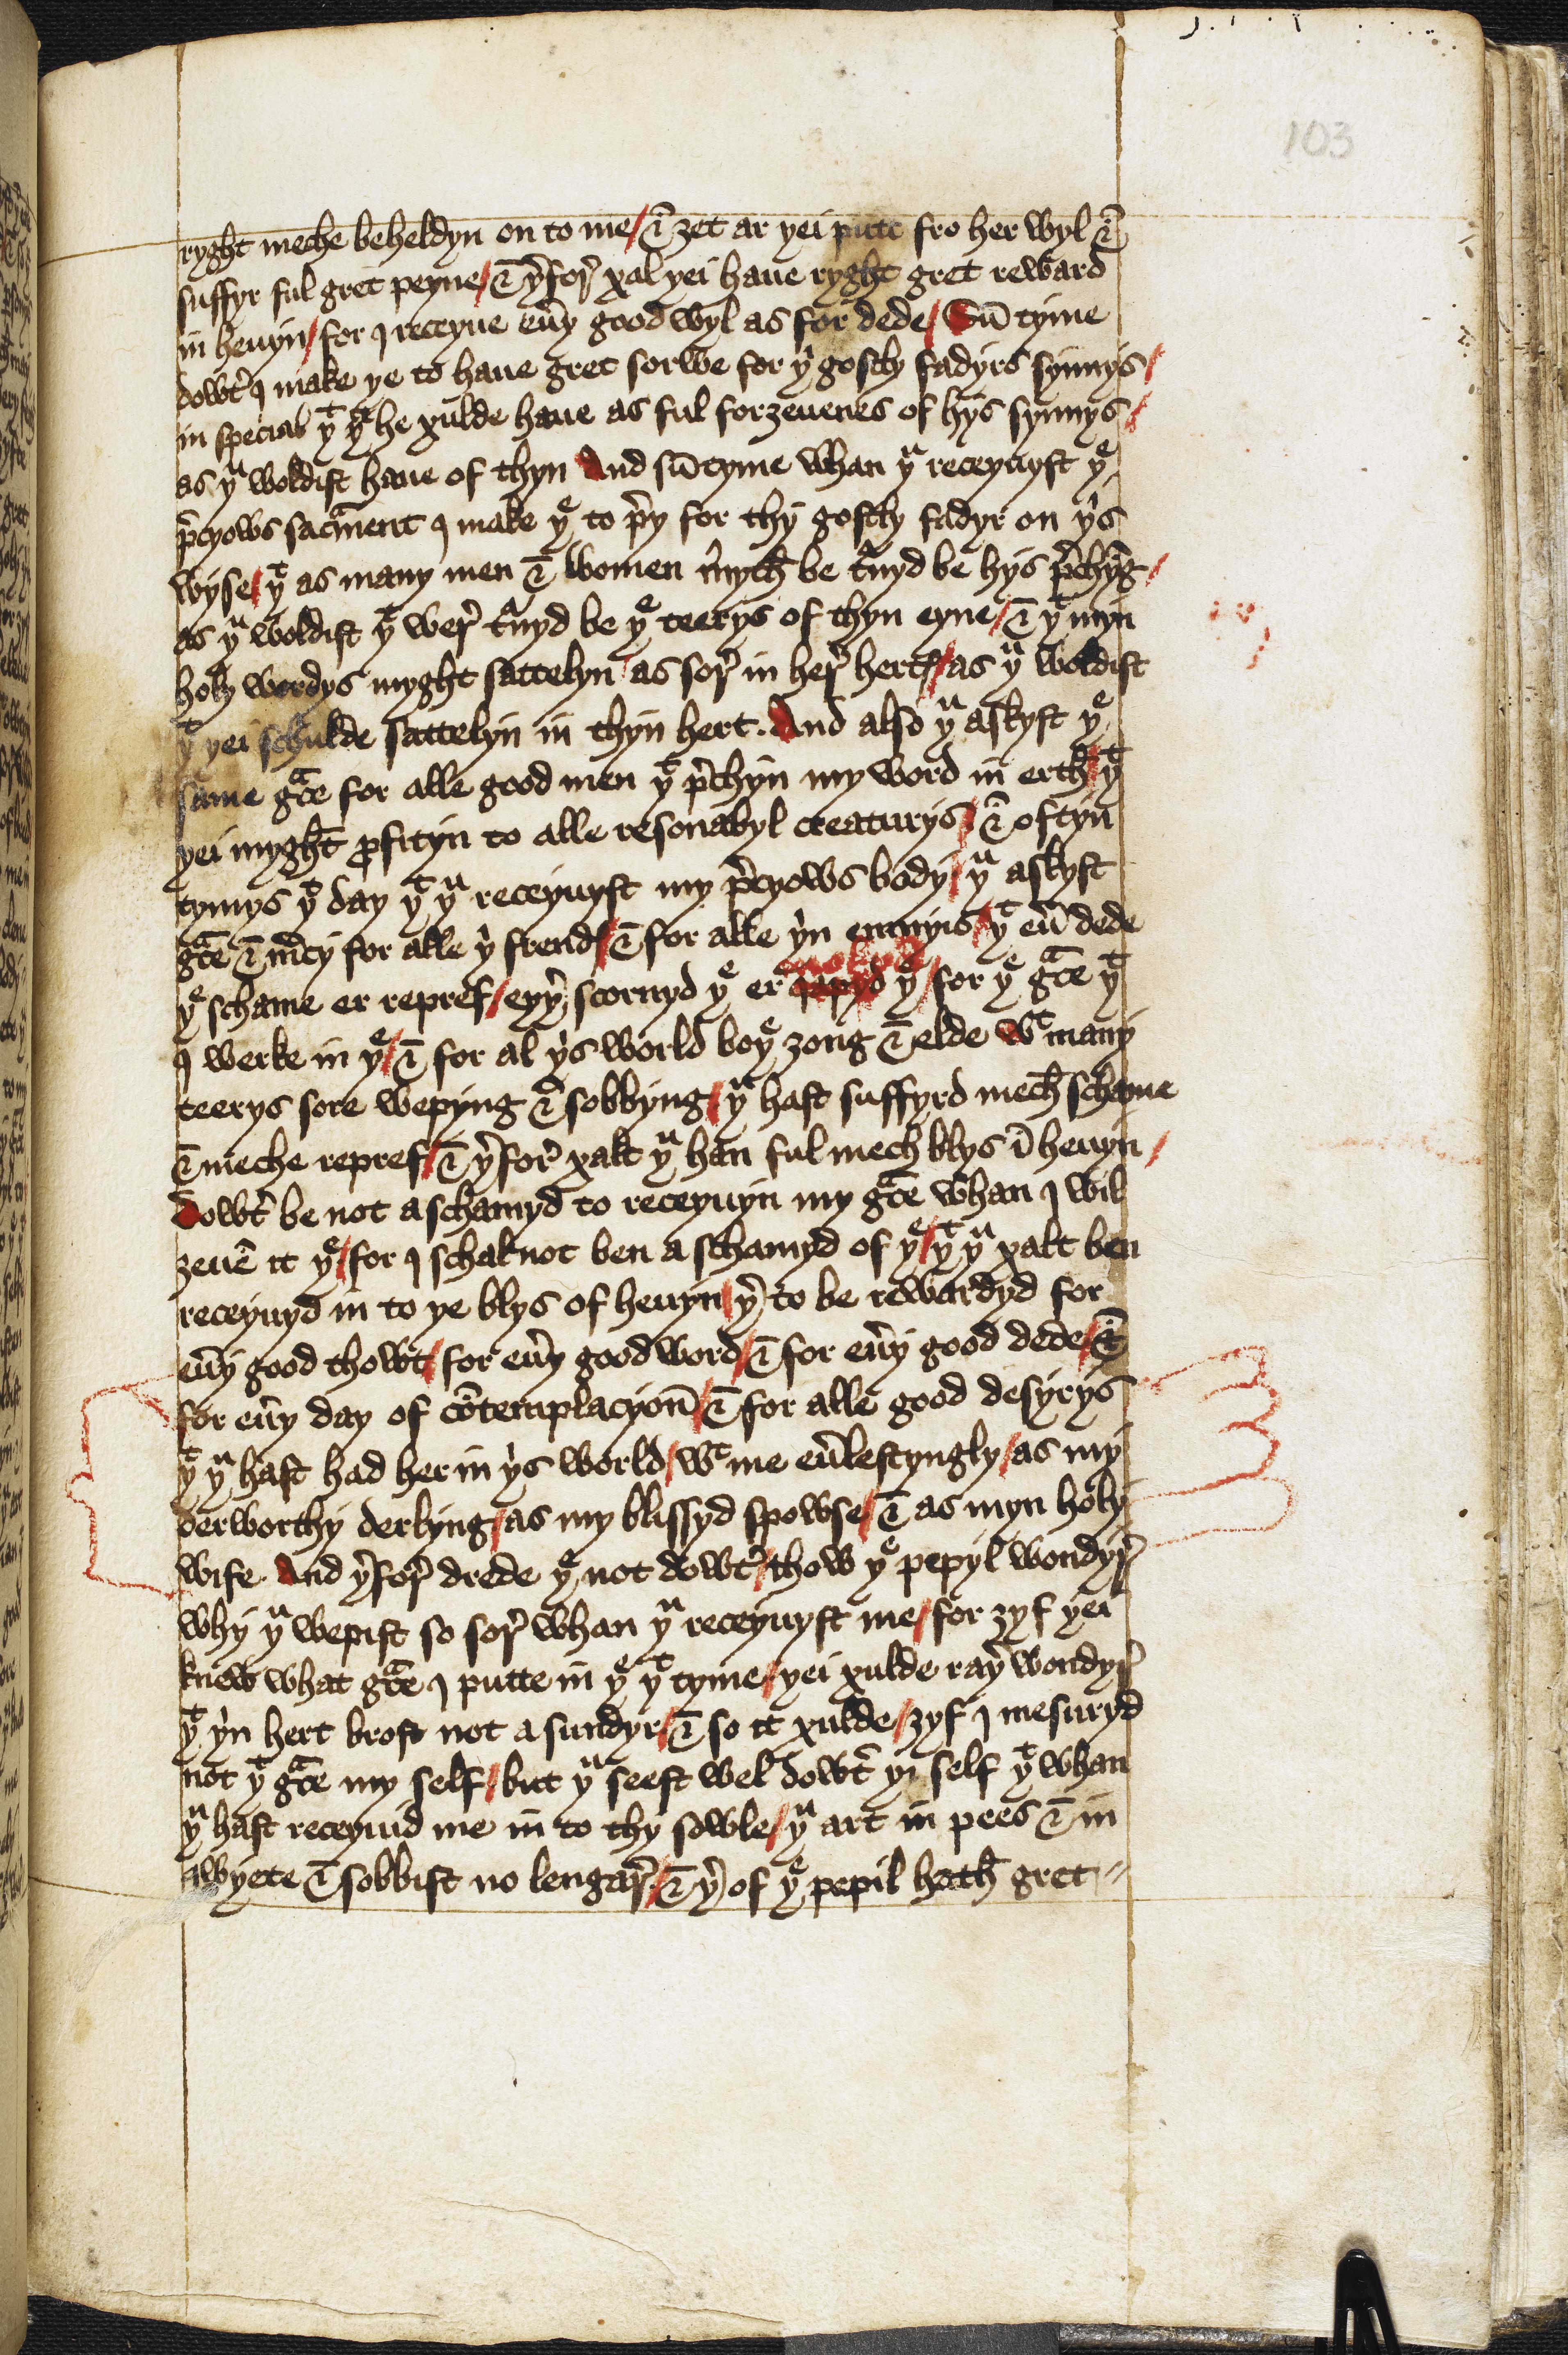 103
ryght meche beheldyn on to me / & ȝet ar yei putt fro her wyl &
suffyr ful gret peyne / & yͬfor xal yei haue ryght gret reward
in heuyn / for I receyue eũy good wyl as for dede / Sũ tyme
dowt͛ I make ye to haue gret sorwe for yⁱ gostly fadyrs synnys /
in special yᵗ yᵗ he xulde haue as ful forȝeuenes of hys synnys /
as yᵘ woldist haue of thyn And sũtyme whan yᵘ receyuyst yᵉ
p͛cyows sacᵃment I make yᵉ to p͛y for thy gostly fadyr on yⁱs
wyse / yᵗ as many men & women myth be t͛nyd be hys p͛chyg̃ /
as yᵘ woldist yᵗ wer͛ t͛nyd be yᵉ teerys of thyn eyne / & yᵗ myn
holy wordys myght sattelyn as sor͛ in her͛ hertꝭ / as yᵘ woldist
yᵗ yei schulde sattelyn in thyn hert. And also yᵘ askyst yᵉ
same gᵃce for alle good men yᵗ p͛chyn my word in erth / yᵗ
yei myght ꝓfityn to alle resonabyl creaturys / & oftyn
tymys yᵗ day yᵗ yᵘ receyuyst my p͛cyows body / yᵘ askyst
gᵃce & m͛cy for alle yⁱ frendꝭ / & for alle yⁱn enmyis / yᵗ eũ dede
yᵉ schame er repref / eyy͛ scornyd yᵉ er japyd yᵉ / for yᵉ gᵃce yᵗ
I werke in yᵉ / & for al yⁱs world boyᵉ ȝong & elde wᵗ many
teerys sore wepyng & sobbyng / yᵘ hast suffyrd mech schame
& meche repref / & y͛for͛ xalt yᵘ han ful mech blys ĩ heuyn /
Dowt͛ be not aschamyd to receyuyn my gᵃce whan I wil
ȝeuẽ it yᵉ / for I schal not ben aschamyd of yᵉ / yᵗ yᵘ xalt ben
receyuyd in to ye blys of heuyn / y͛ to be rewardyd for
eũy good thowt / for eũy good word / & for eũy good dede / &
for eũy day of cõtemplacyoñ / & for alle good desyrys
yᵗ yᵘ hast had her in yⁱs world / wᵗ me eũlestyngly / as my
derworthy derlyng / as my blissyd spowse / & as myn holy
wife. And y͛for͛ drede yᵉ not dowt͛ / thow yᵉ pepyl wondyr͛
why yᵘ wepist so sor͛ whan yᵘ receyuyst me / for ȝyf yei
knew what gᵃce I putte in yᵉ yᵗ tyme / yei xulde ray͛ wondyr͛
yᵗ yⁱn hert brost not a sundyr / & so it xulde / ȝyf I mesuryd
not yᵗ gᵃce my self / but yᵘ seest wel dowt͛ yi self yᵗ whan
yᵘ hast receyuid me in to thy sowle / yᵘ art in pees & in
qwyete & sobbist no lengar͛ / & y͛ of yᵉ pepil hath gret